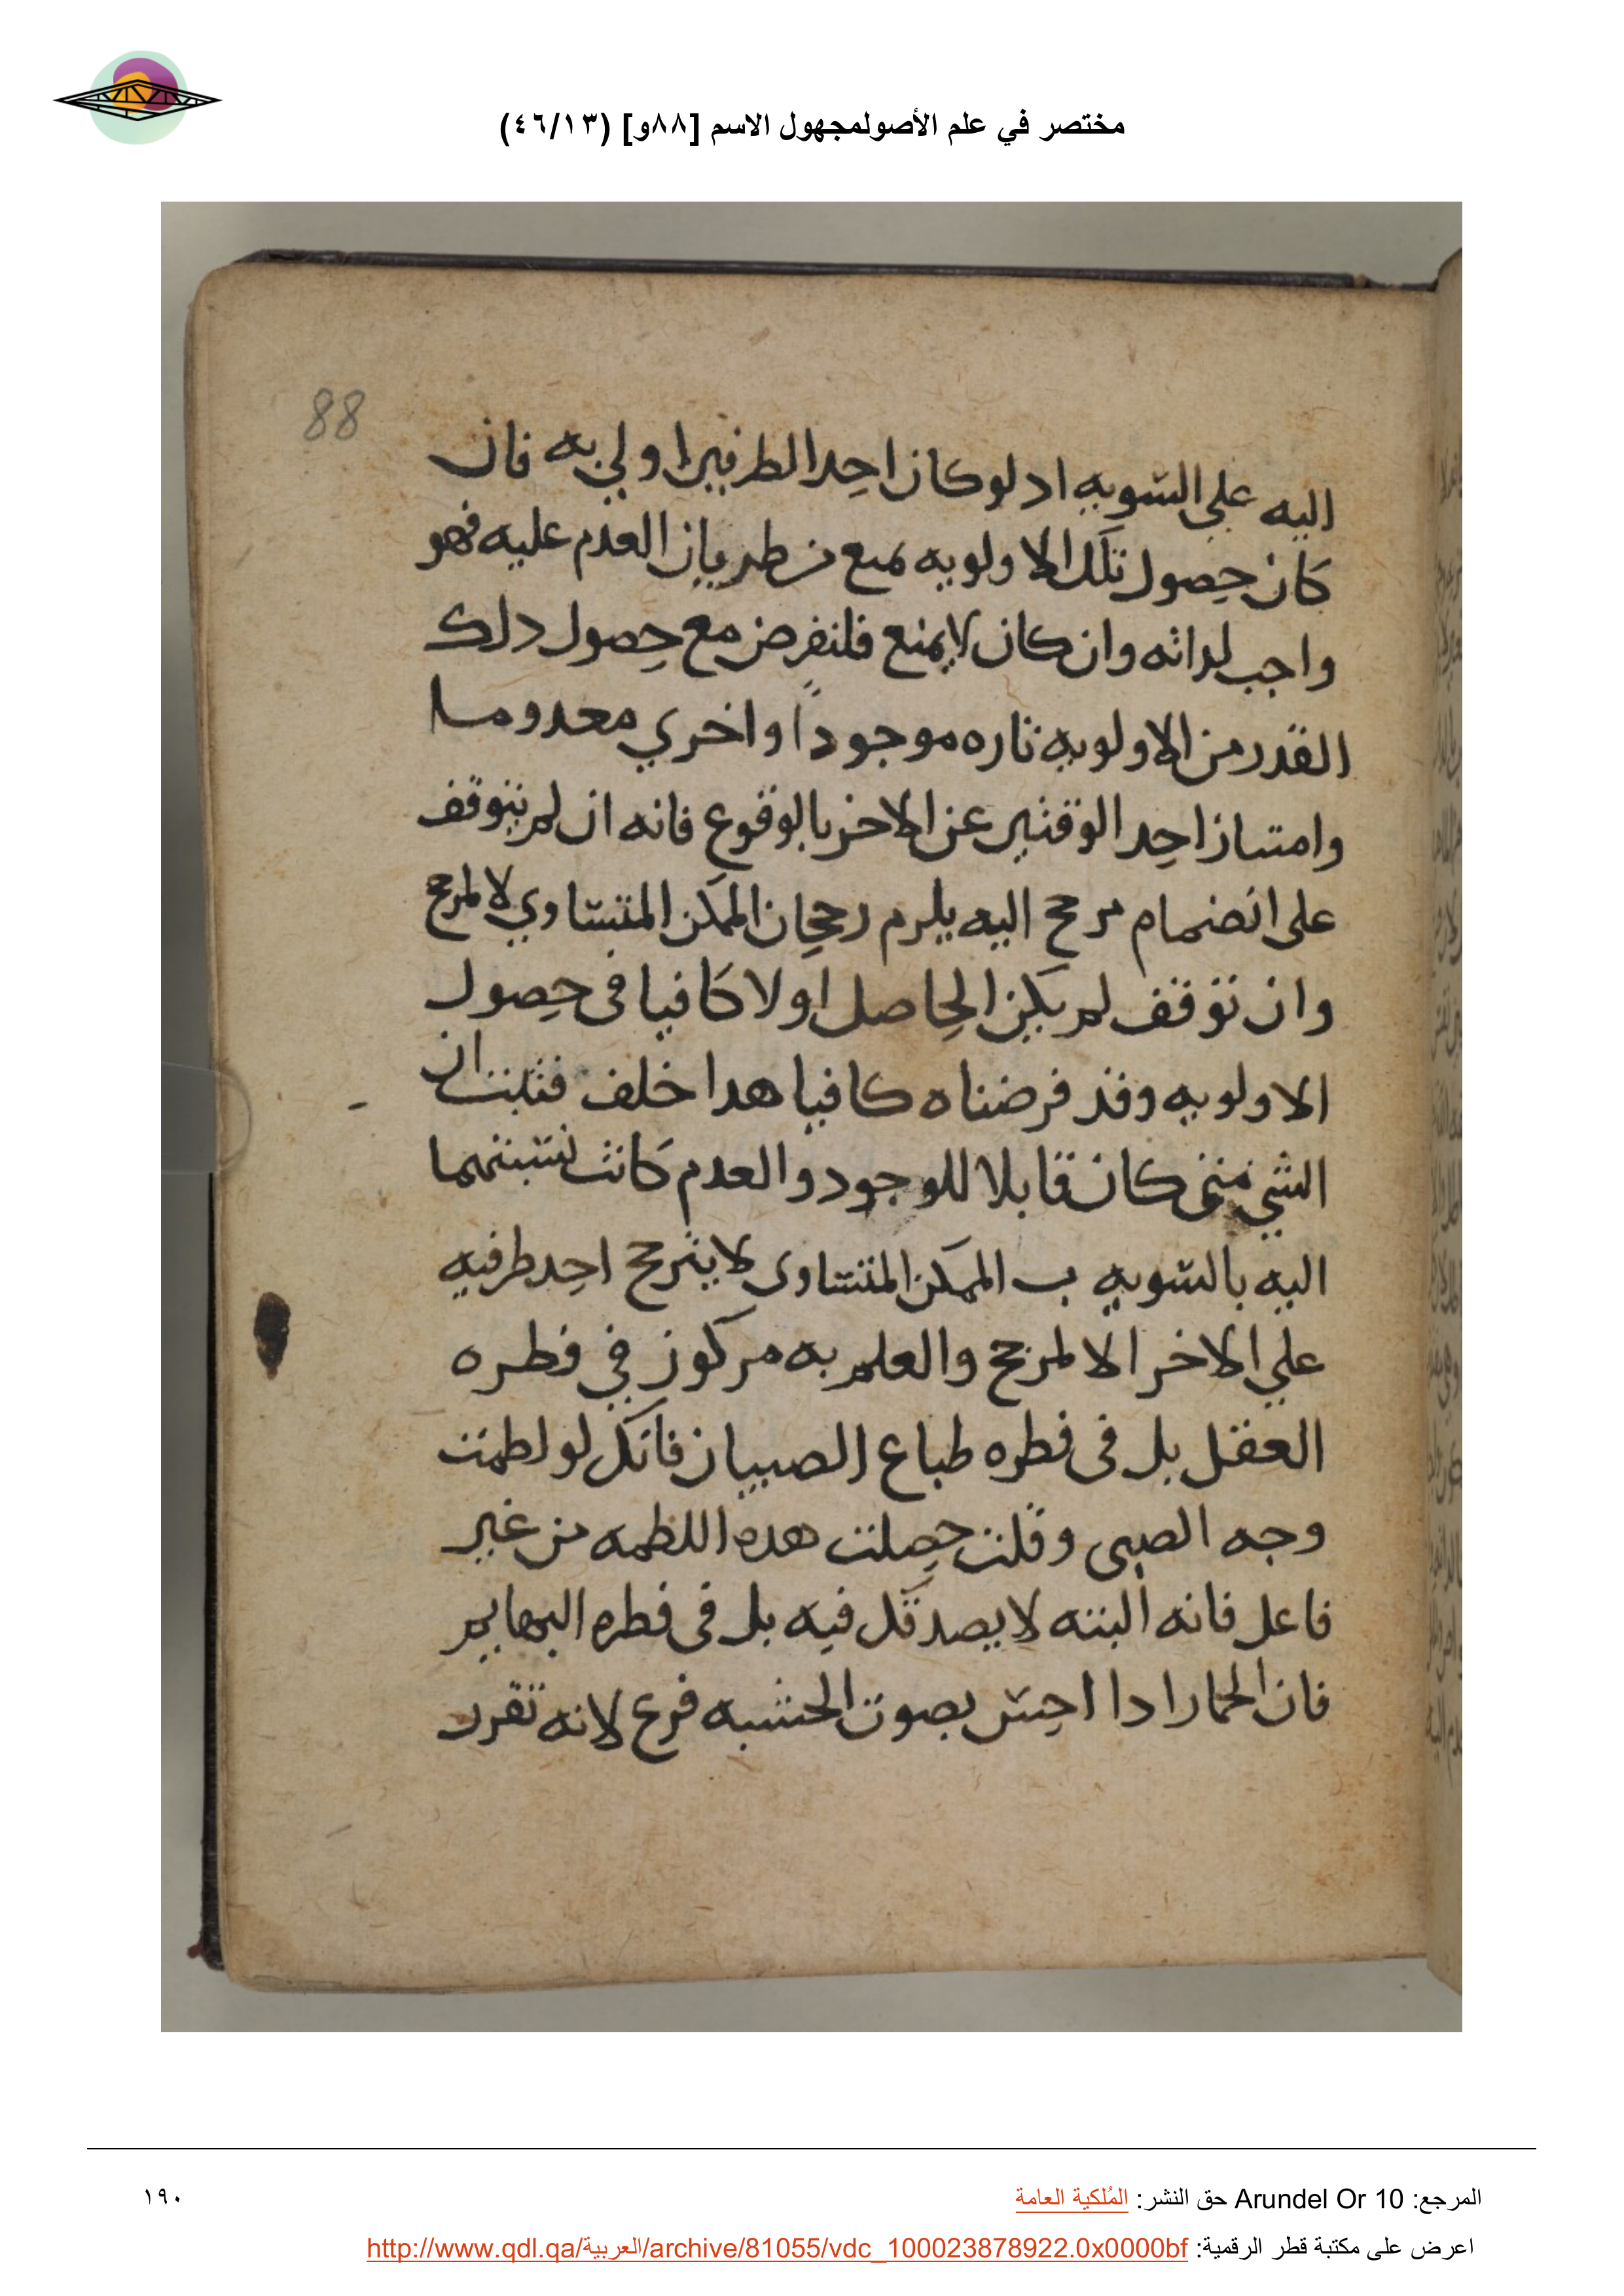 مختصر في علم الأصولمجهول الاسم [٨٨و] (٤٦/١٣)
88
اليه علي السويه اد لو كان احد الطرفين اولي به فان
كان حصول تلك الاولويه تمنع من طريان العدم عليه فهو
واجب لداته وان كان لا يمنع فلنفرض مع حصول دلك
القدر من الاولويه تاره موجوداً واخري معدوما
وامتياز احد الوقتين عن الاخر بالوقوع فانه ان لم يتوقف
على انضمام مرجح اليه يلزم رجحان الممكن المتساوي لا لمرجح
وان توقف لم يكن الحاصل اولا كافيا فى حصول
الاولويه وقد فرضناه كافيا هدا خلف فثبت ان
الشي متى كان قابلا للوجود والعدم كانت نسبتهما
اليه بالسويه ب الممكن المتساوى لا يترجح احد طرفيه
علي الاخر الا لمرجح والعلم به مركوز في فطره
العقل بل فى فطره طباع الصبيان فانك لو لطمت
وجه الصبى وقلت حصلت هده اللطمه من غير
فاعل فانه البته لا يصدقك فيه بل فى فطره البهايم
فان الحمار ادا احس بصوت الخشبه فزع لانه تقرر
المرجع: Arundel Or 10 حق النشر: المُلكية العامة
١٩٠
اعرض على مكتبة قطر الرقمية: http://www.qdl.qa/العربية/archive/81055/vdc_100023878922.0x0000bf